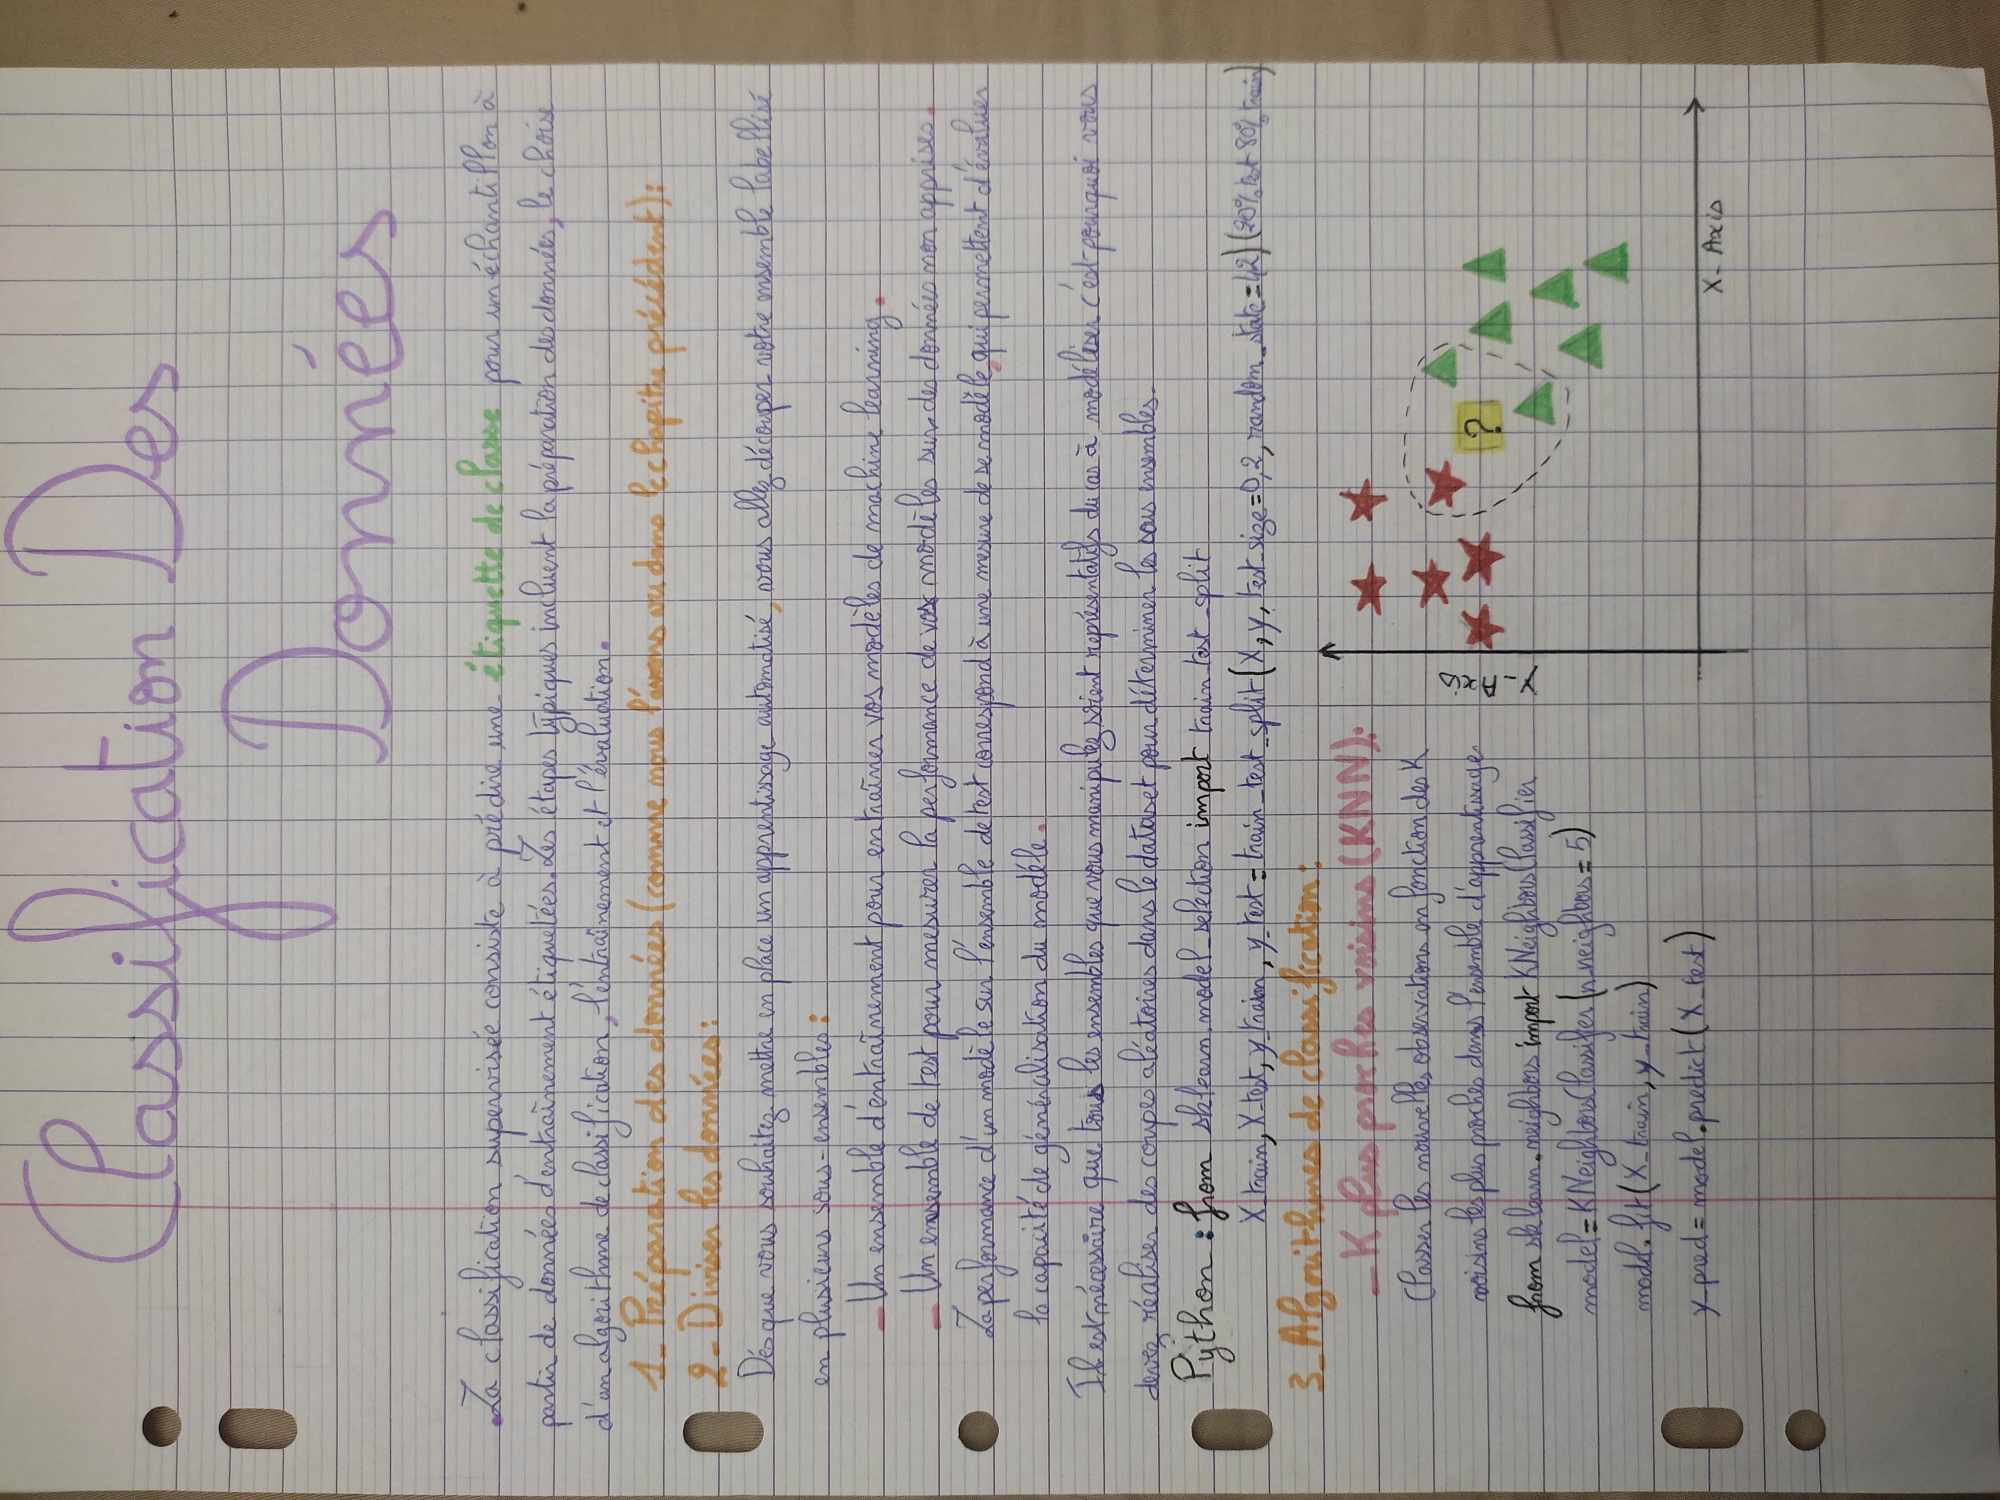 Classification Des
Données
La classification supervisée consiste à prédire une étiquette de classe pour un échantillon à
partir de données d'entraînement étiquetées. Les étapes typiques incluent la préparation des données, le choix
d'un algorithme de classification, l'entraînement et l'évaluation.
1- Préparation des données (comme nous l'avons vu dans le chapitre précédent):
2- Diviser les données:
Dés que vous souhaitez mettre en place un apprentissage automatisé, vous allez découper votre ensemble labellisé
en plusieurs sous-ensembles:
- Un ensemble d'entraînement pour entraîner vos modèles de machine learning.
- Un ensemble de test pour mesurer la performance de vos modèles sur des données non apprises.
La performance d'un modèle sur l'ensemble de test correspond à une mesure de se modèle, qui permettent d'évaluer
la capacité de généralisation du modéle.
Il est nécessaire que tous les ensembles que vous manipulez soient représentatifs du cas à modéliser c'est pourquoi vous
devez réaliser des coupes aléatoires dans le dataset pour déterminer les sous ensembles.
Python: from sklearn.model_selection import train_test_split
X_train, X_test, y_train, y_test = train_test_split(X, y, test_size=0,2, random_state=42) (20% test 80% train)
3- Algorithmes de classification:
- K plus proches voisins (KNN):
Classer les nouvelles observations en fonction des K
voisins les plus proches dans l'ensemble d'apprentissage
from sklearn.neighbors import KNeighborsClassifier
model=KNeighborsClassifier(n_neighbors=5)
model.fit(X_train, y_train)
y_pred = model.predict(X_test)
Y-Axis
?
X-Axis